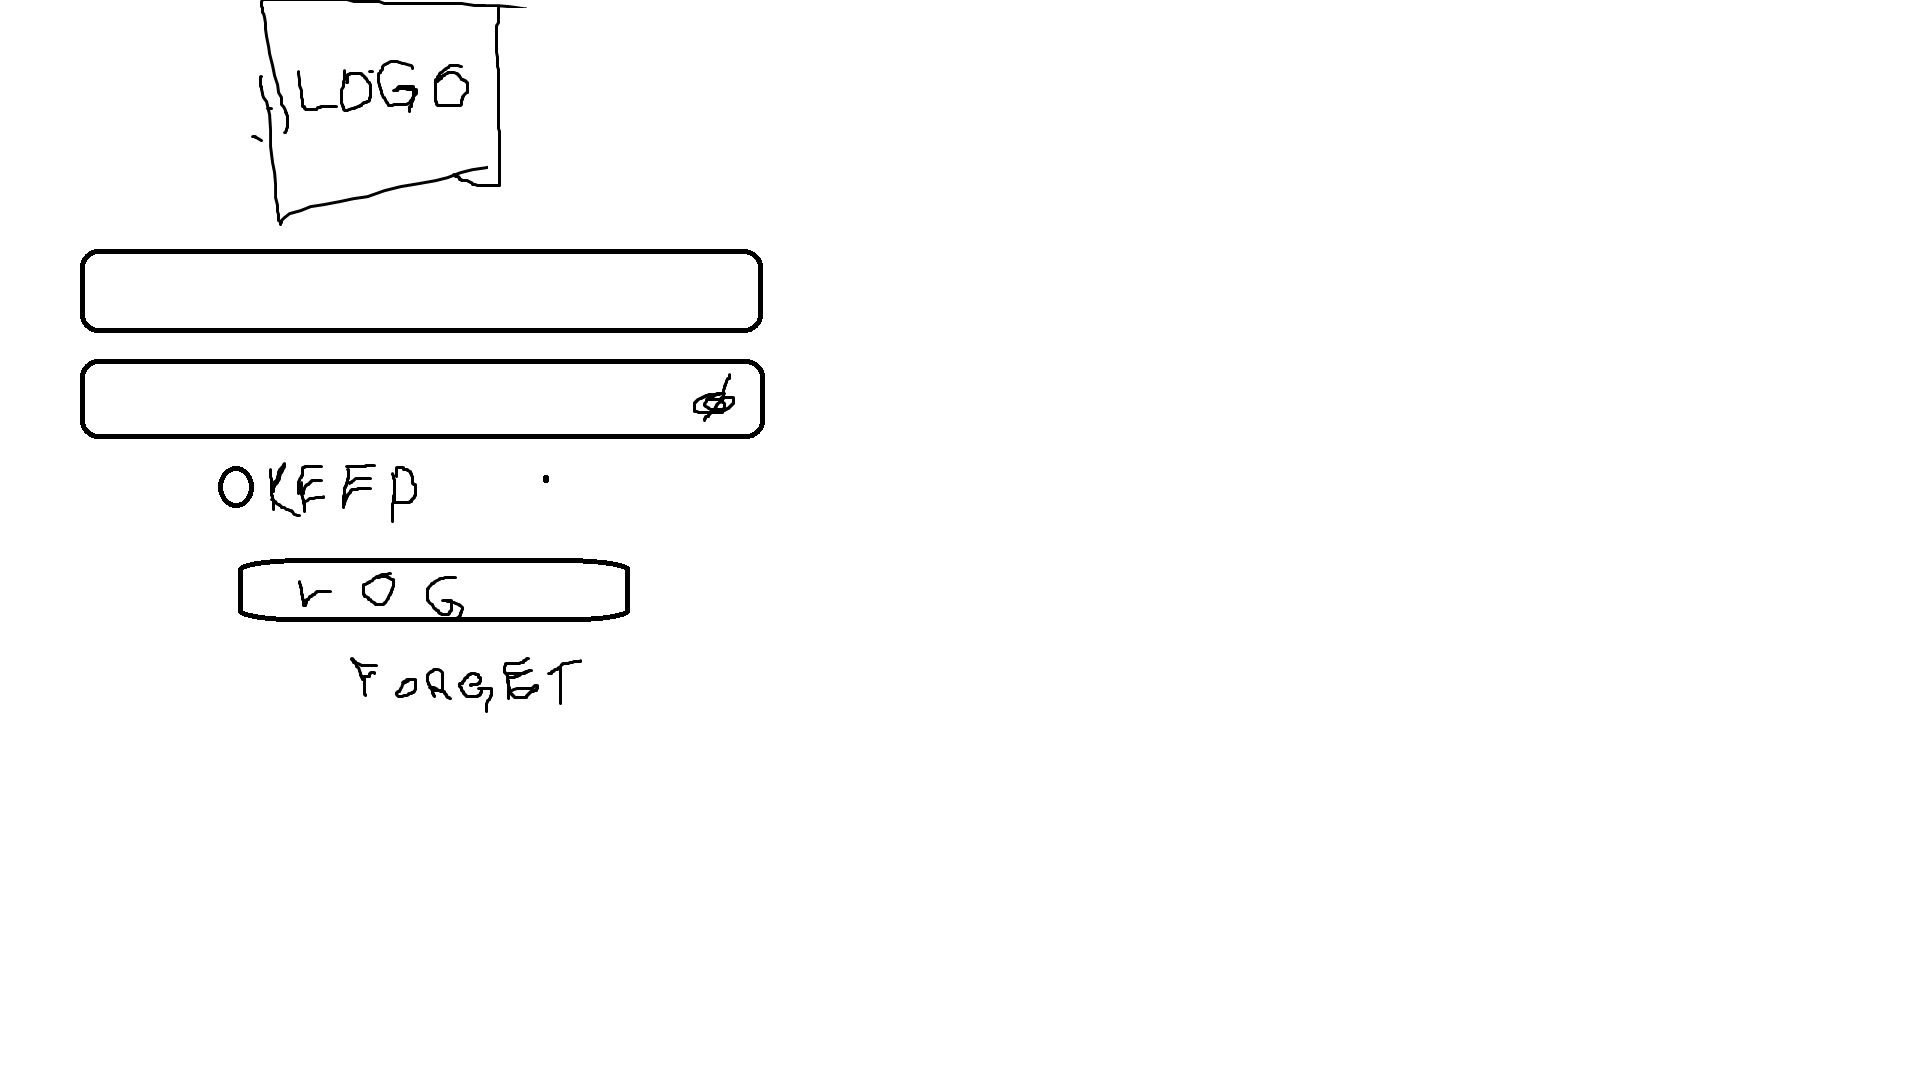 LOGO
KEEP
LOG
FORGET